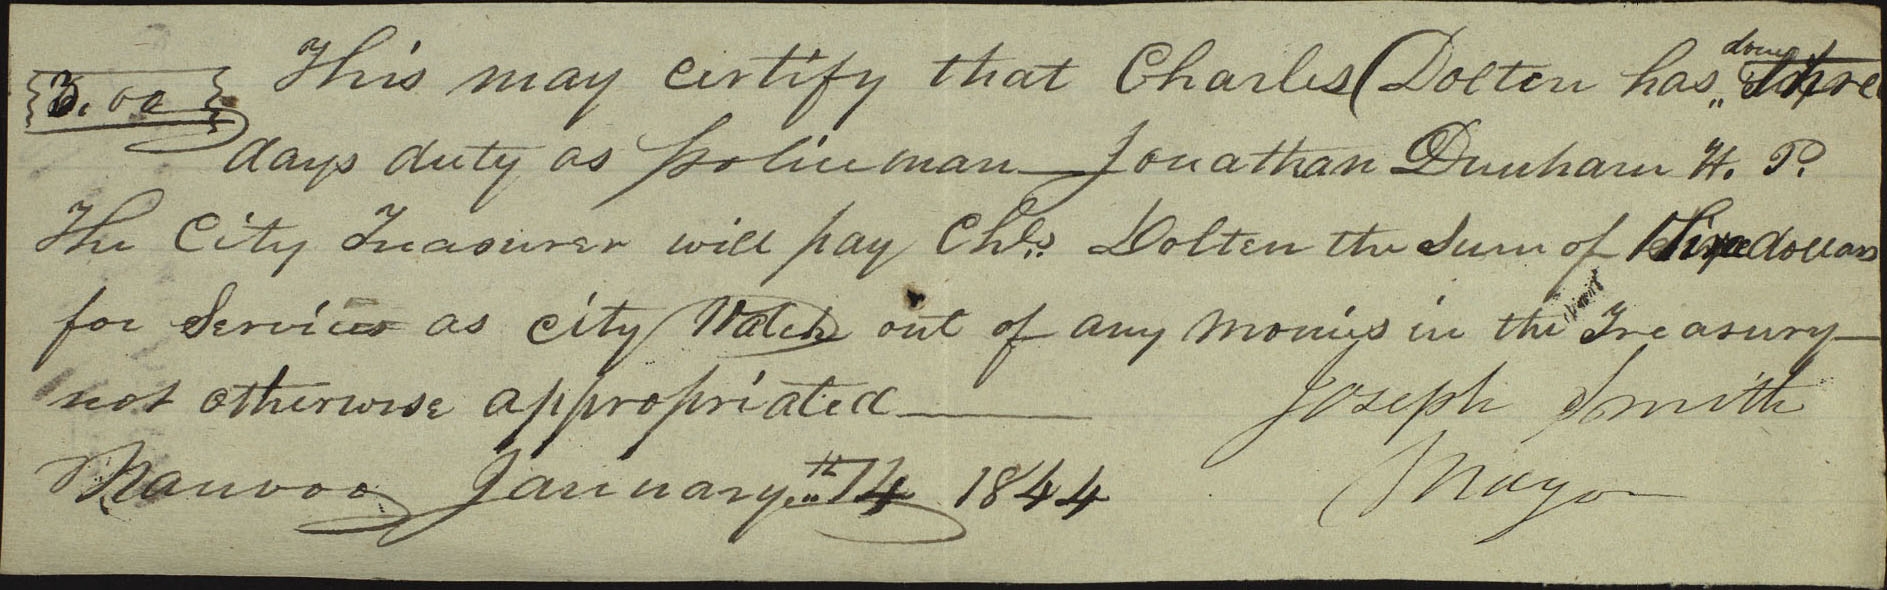 This may certify that Charles Dolten has done three
3.00
days duty as policeman — Jonathan Dunham H. P.
The City Treasurer will pay Chls. Dolten the Sum of three dollars
for Services as city Watch out of any monies in the Treasury —
not otherwise appropriated — Joseph Smith
Nauvoo January 14th 1844 Mayor